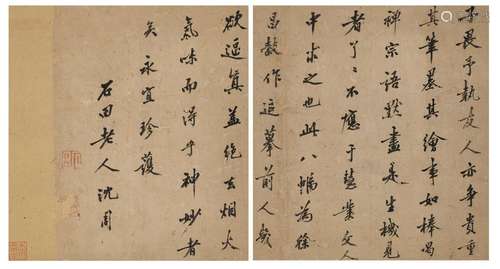 子畏予執友人亦争貴重
其筆墨其繪事如棒喝
禅宗語默盡是生機見
者了々不應于慧業文人
中求之也此八幀為徐
昌穀作追摹前人幾
欲逼真蓋絕去烟火
氣味而得乎神妙者
矣永宜珍護
石田老人沈周